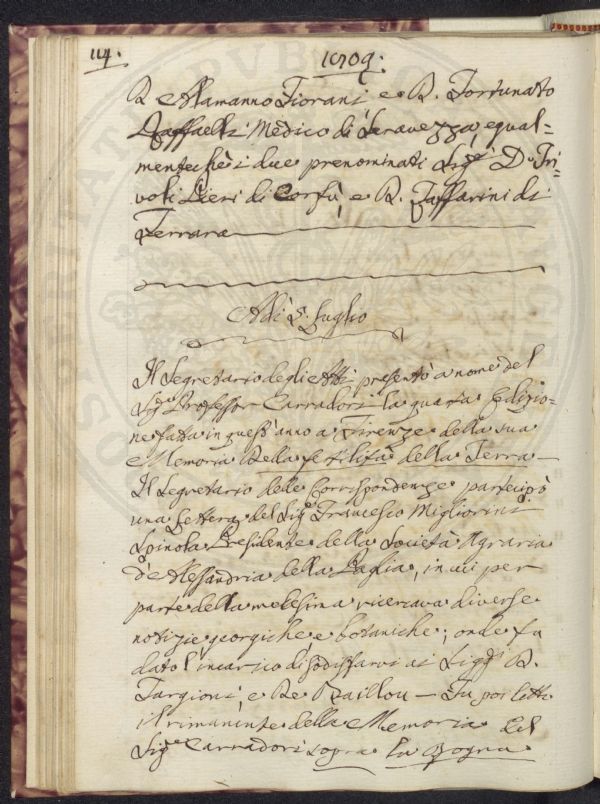 114.
1809.
D. Alamanno Fiorani, e D. Fortunato
Raffaelli Medico di Seravezza, equal=
mente chè i due prenominati Sig.ri D. Tri=
voli Pieri di Corfù, e D. Taffarini di
Ferrara
Adì 5. Luglio
Il Segretario degli Atti presentò a nome del
Sig.e Professor Carradori la quarta Edizio=
ne fatta in quest'anno a Firenze della sua
Memoria Della fertilità della Terra —
Il Segretario delle Corrispondenze partecipò
una Lettera del Sig.e Francesco Migliorini
Spinola Presidente della Società Agraria
d'Alessandria della Paglia, in cui per
parte della medesima ricercava diverse
notizie georgiche, e botaniche; onde fu
dato l'incarico di sodisfarvi ai Sigg.i D.
Targioni, e De Baillou — Fu poi letto
il rimanente della Memoria del
Sig.e Carradori sopra la